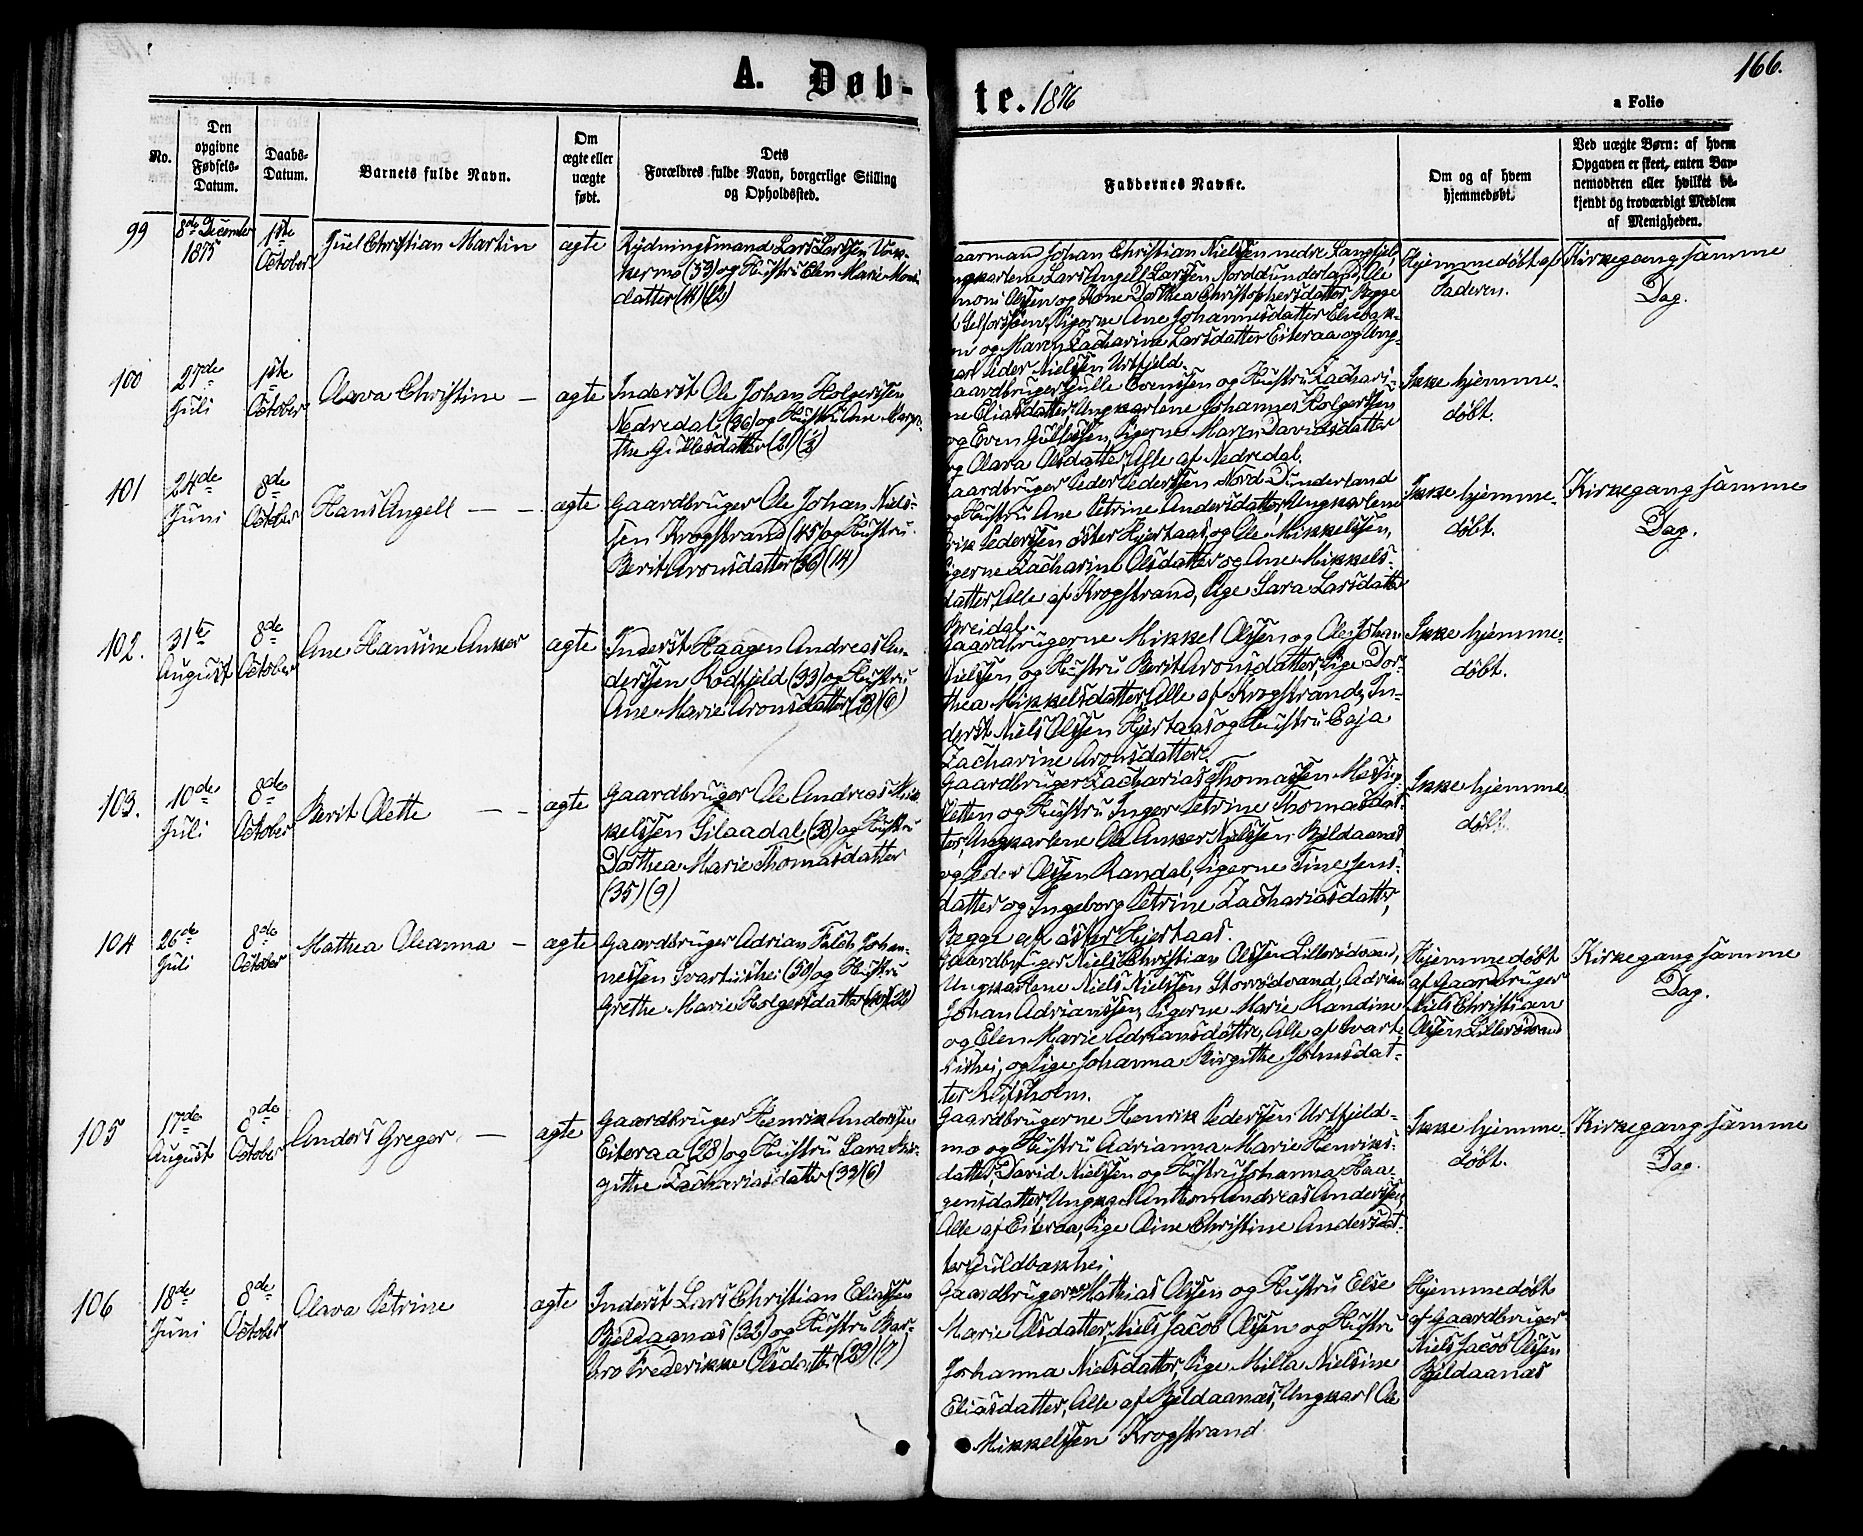 166.
A. Døb-
te. 1876
a Folio
No.
Den
opgivne
Fødsels-
Datum.
Daabs-
Datum.
Barnets fulde Navn.
Om
ægte eller
uægte
født.
Dets
Forældres fulde Navn, borgerlige Stilling
og Opholdssted.
Faddernes Navne.
Om og af hvem
hjemmedøbt.
Ved uægte Børn: af hvem
Opgaven er skeet, enten Bar-
nemoderen eller hvilket be-
kjendt og troværdigt Medlem
af Menigheden.
99
8de December
1875
1ste
October
Juel Christian Martin
ægte
Rydningsmand Lars Larssen
(53) og Hustru Elen Marie Mons-
datter (41) (12)
Gaarmand Johan Christian Nielssen nedre Langfjeld,
Ungkarlene Lars Angell Larssen Norddunderland, Ole
Simoni Olssen og Kone Dorthea Christophersdatter, Begge
Pigerne Ane Johannesdatter
og Maren Zacharine Larsdatter Eiteraa og Ung-
karl Peder Nielssen Urtfjeld.
Hjemmedøbt af
Faderen.
Kirkegang samme
Dag.
100
27de
Juli
1ste
October
Olava Christine —
ægte
Inderst Ole Johan Holgerssen
Nedredal (26) og Hustru Ane Marga-
the Gullesdatter (21) (2)
Gaardbruger Gulle Evenssen og Hustru Zachari-
ne Eliasdatter, Ungkarlene Johannes Holgerssen
og Even Gullessen, Pigerne Maren Davidsdatter
og Olava Olsdatter, Alle af Nedredal.
Ikke hjemme-
døbt.
101
24de
Juni
8de
October
Hans Angell — —
ægte
Gaardbruger Ole Johan Niels-
sen Krogstrand (45) og Hustru
Berit Aronsdatter (36) (14)
Gaardbruger Peder Pederssen Nord Dunderland
og Hustru Ane Petrine Andersdatter, Ungkarlene
Erik Pederssen øster Hjertaas, og Ole Mikkelssen,
Pigerne Zacharine Olsdatter og Ane Mikkels-
datter, Alle af Krogstrand, Pige Sara Larsdatter
Bredal.
Ikke hjemme-
døbt.
Kirkegang samme
Dag.
102.
31te
August
8de
October
Ane Hansine Anker
ægte
Inderst Haagen Andreas An-
derssen Rødfjeld (33) og Hustru
Ane Marie Aronsdatter (28) (6)
Gaardbrugerne Mikkel Olssen og Ole Johan
Nielssen og Hustru Berit Aronsdatter, Pige Dor-
thea Mikkelsdatter, Alle af Krogstrand, In-
derst Niels Olssen Hjertaas og Hustru Caja
Zacharine Aronsdatter.
Ikke hjemme-
døbt.
103.
10de
Juli
8de
October
Berit Olette — —
ægte
Gaardbruger Ole Andreas Mik-
kelssen Gilaadal (28) og Hustru
Dorthea Marie Thomasdatter
(35) (9)
Gaardbruger Zacharias Thomassen Messing-
sletten og Hustru Inger Petrine Thomasdat-
ter, Ungkarlene Ole Anker Nielssen Bjeldaanæs
og Peder Olssen Randal, Pigerne Tine Jens-
datter og Ingeborg Petrine Zachariasdatter,
Begge af øster Hjertaas.
Ikke hjemme-
døbt.
104
26de
Juli
8de
October
Mathea Oleanna —
ægte
Gaardbruger Adrian Falch Johan-
nessen Svartiishei (50) og Hustru
Grethe Marie Holgersdatter
Gaardbruger Niels Christian Olssen Lillerødvand,
Ungkarlene Niels Nielssen Storrødvand, Adrian
Johan Adrianssen, Pigerne Marie Randine
og Elen Marie Adriansdøttre, Alle af Svart-
iishei, og Pige Johanna Birgithe Johnsdat-
ter Reifsholm.
Hjemmedøbt
af Gaardbruger
Niels Christian
Olssen Lillerødvand
Kirkegang samme
Dag.
105
17de
August
8de
October
Anders Greger —
ægte
Gaardbruger Henrik Anderssen
Eiteraa (28) og Hustru Sara Bir-
githe Zachariasdatter (33) (6)
Gaardbrugerne Henrik Pederssen Urtfjeld-
mo og Hustru Adrianna Marie Henriks-
datter, David Nielssen og Hustru Johanna Haa-
gensdatter, Ungkarl Anthon Andreas Anderssen,
Alle af Eiteraa, Pige Christine Andersdat-
ter Guldbakhei
Ikke hjemme-
døbt.
Kirkegang samme
Dag.
106
18de
Juni
8de
October
Olava Petrine
ægte
Inderst Lars Christian Eliassen
Bjeldaanæs (32) og Hustru Bar-
bro Frederikke Olsdatter (29) (7)
Gaardbrugerne Mathias Olssen og Hustru Else
Marie Olsdatter, Niels Jacob Olssen og Hustru
Johanna Nielsdatter, Pige Milla Nielsine
Eliasdatter, Alle af Bjeldaanæs, Ungkarl Ole
Mikkelssen Krogstrand
Hjemmedøbt
af Gaardbruger
Niels Jacob Olssen
Bjeldaanæs